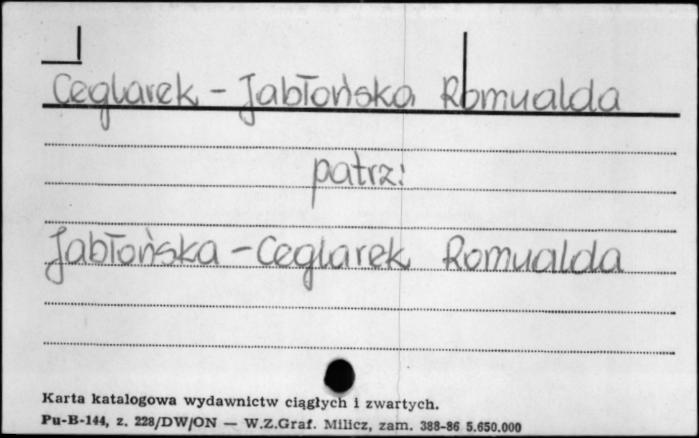 Ceglarek - Jabłońska Romualda
patrz:
Jabłońska - Ceglarek Romualda
Karta katalogowa wydawnictw ciągłych i zwartych.
Pu-B-144, z. 228/DW/ON — W.Z.Graf. Milicz, zam. 388-86 5.650.000